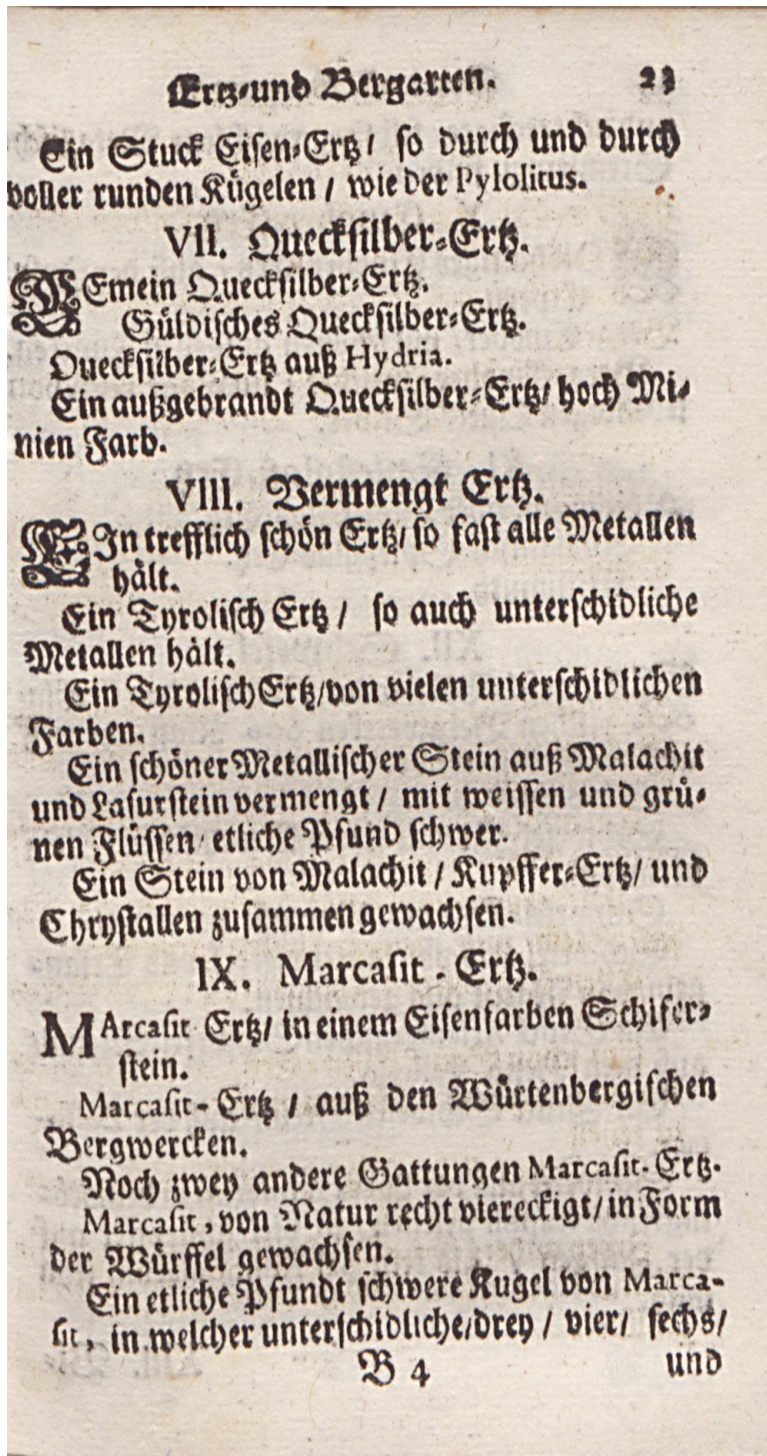 Ertz-und Bergarten. 23
Ein Stuck Eisen-Ertz / so durch und durch
voller runden Kügelen / wie der Pylolitus.
VII. Quecksilber-Ertz.
GEmein Quecksilber-Ertz.
Güldisches Quecksilber-Ertz.
Quecksilber-Ertz auß Hydria.
Ein außgebrandt Quecksilber-Ertz/ hoch Mi-
nien Farb.
VIII. Vermengt Ertz.
EIn trefflich schön Ertz/ so fast alle Metallen
hält.
Ein Tyrolisch Ertz / so auch unterschidliche
Metallen hält.
Ein Tyrolisch Ertz/von vielen unterschidlichen
Farben.
Ein schöner Metallischer Stein auß Malachit
und Lasurstein vermengt / mit weissen und grü-
nen Flüssen/ etliche Pfund schwer.
Ein Stein von Malachit / Kupffer-Ertz/ und
Chrystallen zusammen gewachsen.
IX. Marcasit-Ertz.
MArcasit Ertz/ in einem Eisenfarben Schifer-
stein.
Marcasit-Ertz / auß den Würtenbergischen
Bergwercken.
Noch zwey andere Gattungen Marcasit-Ertz.
Marcasit, von Natur recht viereckigt/ in Form
der Würffel gewachsen.
Ein etliche Pfundt schwere Kugel von Marca-
sit, in welcher unterschidliche/drey / vier/ sechs/
B 4 und